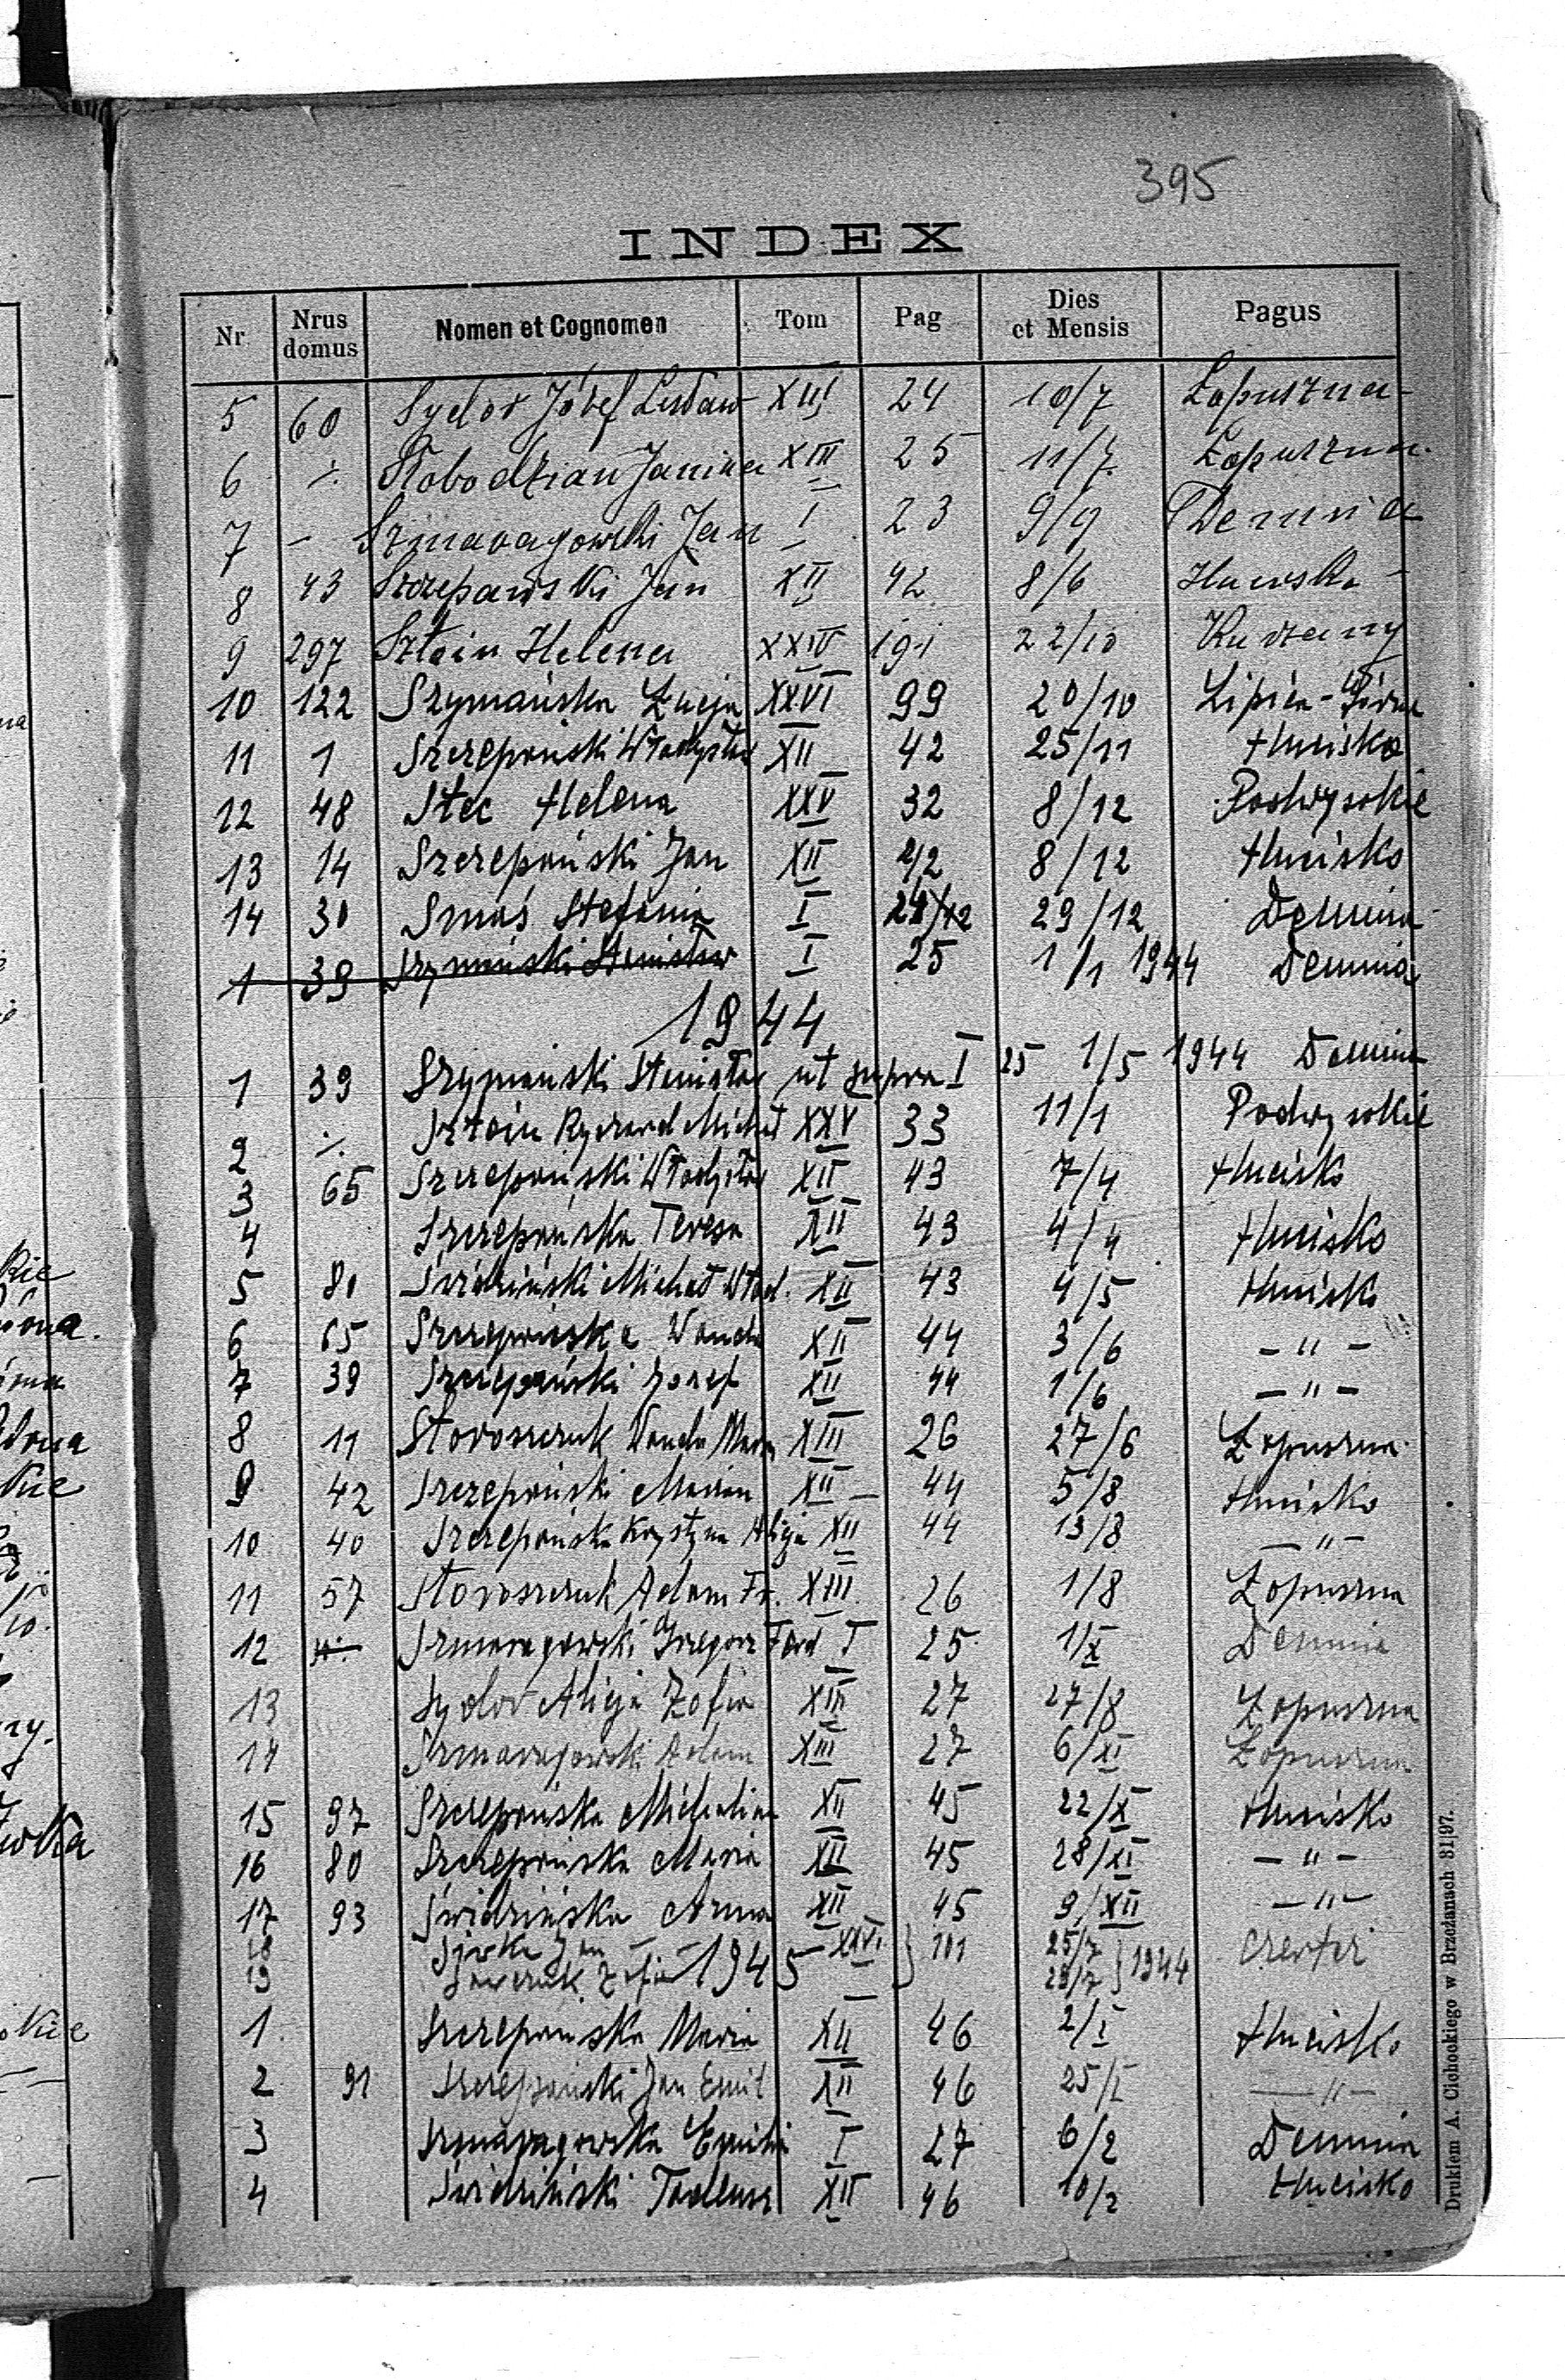 395
INDEX
Nr Nrus domus Nomen et Cognomen Tom Pag Dies et Mensis Pagus
5 60 Sydor Józef Lesław XIII 24 10/7 Łopuszna
6 ./. Słobodzian Janina XIII 25 11/7 Łopuszna
7 - Szmaragowski Jan I 23 9/9 Demnia
8 43 Szczepański Jan XII 42 8/6
9 297 Sztoin Helena XXIV 191 22/10 Kurzany
10 122 Szymańska Łucja XXVI 99 20/10 Lipica-Górna
11 1 Szczepański Władysław XII 42 25/11 Hucisko
12 48 Stec Helena XXV 32 8/12 Podwysokie
13 14 Szczepański Jan XII 42 8/12 Hucisko
14 30 Smaś Stefania I 24 29/12 Demnia
1 39 Szymański Stanisław I 25 1/1 1944 Demnia
1944
1 39 Szymański Stanisław ut supra I 25 1/5 1944 Demnia
2 ./. Sztoin Ryszard Michał XXV 33 11/1 Podwysokie
3 65 Szczepański Władysław XII 43 7/4 Hucisko
4 Szczepańska Teresa XII 43 4/4 Hucisko
5 80 Świdziński Michał Wład. XII 43 4/5 Hucisko
6 65 Szczepańska Wanda XII 44 3/6 - " -
7 39 Szczepański Józef XII 44 1/6 - " -
8 11 Storoszczuk Wanda Maria XIII 26 27/6 Łopuszna
9 42 Szczepański Marian XII 44 5/8 Hucisko
10 40 Szczepańska Krystyna Alicja XII 44 13/8 - " -
11 57 Storoszczuk Adam Fr. XIII 26 1/8 Łopuszna
12 Szmaragowski Grzegorz Ferd I 25 1/X Demnia
13 Sydor Alicja Zofia XIII 27 27/8 Łopuszna
14 Szmaragowski Adam XIII 27 6/XI Łopuszna
15 97 Szczepańska Michalina XII 45 22/X Hucisko
16 80 Szczepańska Maria XII 45 28/XI - " -
17 93 Świdzińska Anna XII 45 9/XII - " -
18 Jan XXVI 101 25/7 1944
19 Zofia 29/7
1945
1 Szczepańska Maria XII 46 2/I Hucisko
2 91 Szczepański Jan Emil XII 46 25/I - " -
3 Szmaragowska Emilia I 27 6/2 Demnia
4 Świdziński Tadeusz XII 46 10/2 Hucisko
Drukiem A. Cichockiego w Brzeżanach 31|97.